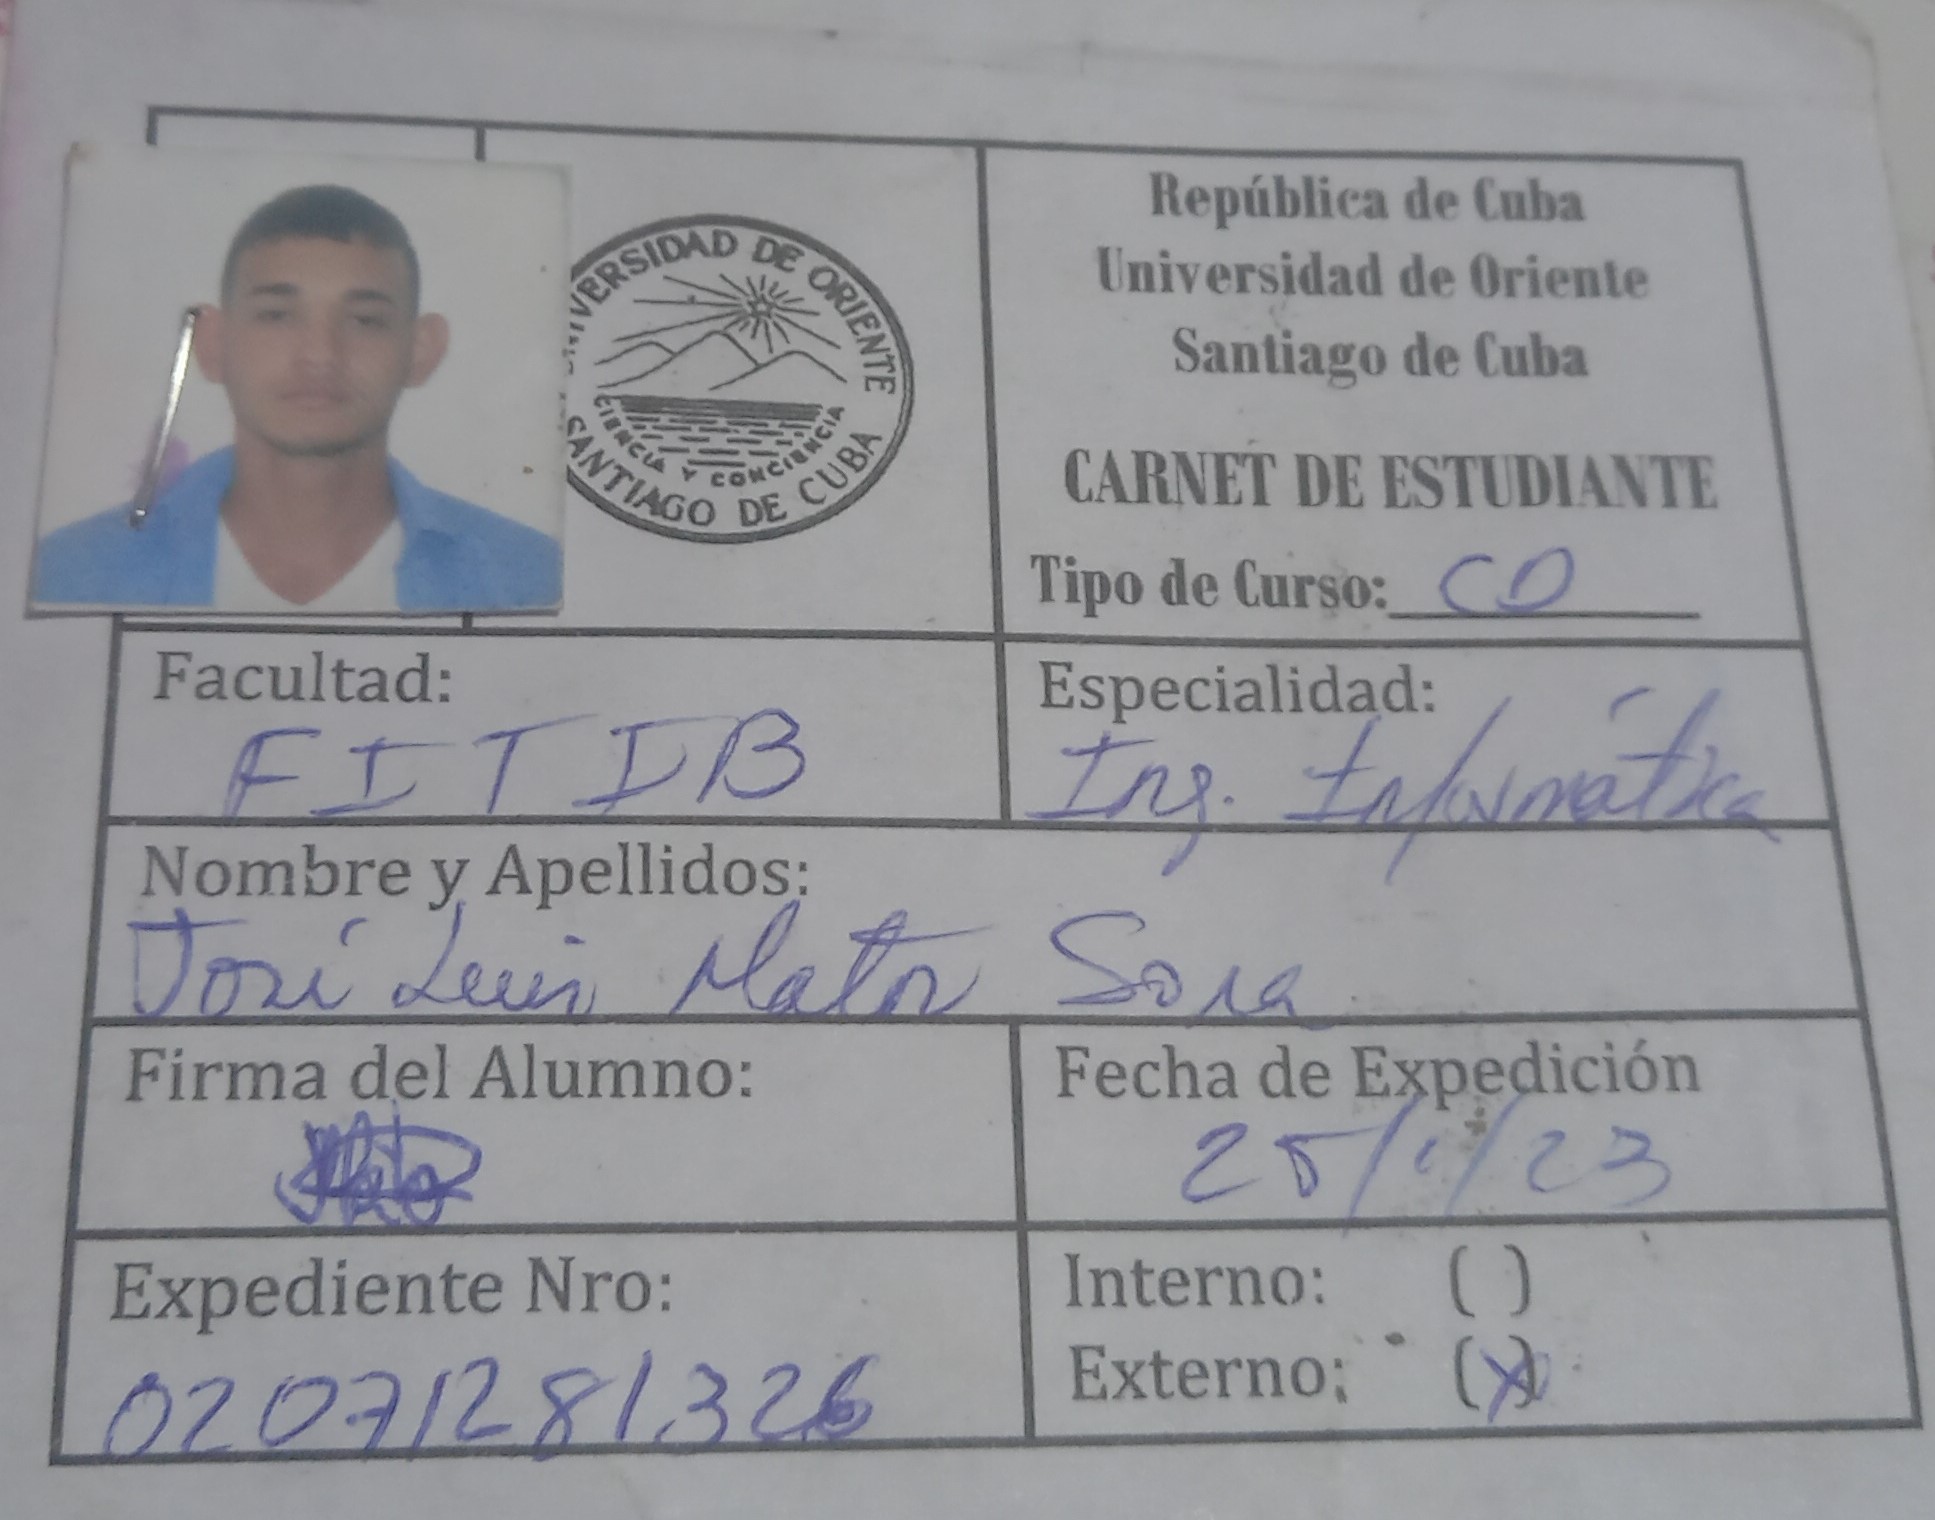 UNIVERSIDAD DE ORIENTE
CIENCIA Y CONCIENCIA
SANTIAGO DE CUBA
República de Cuba
Universidad de Oriente
Santiago de Cuba
CARNET DE ESTUDIANTE
Tipo de Curso: CD
Facultad:
FITIB
Especialidad:
Ing. Informática
Nombre y Apellidos:
José Luis Matos Sosa
Firma del Alumno:
Fecha de Expedición
25/1/23
Expediente Nro:
02071281326
Interno: ( )
Externo: (x)